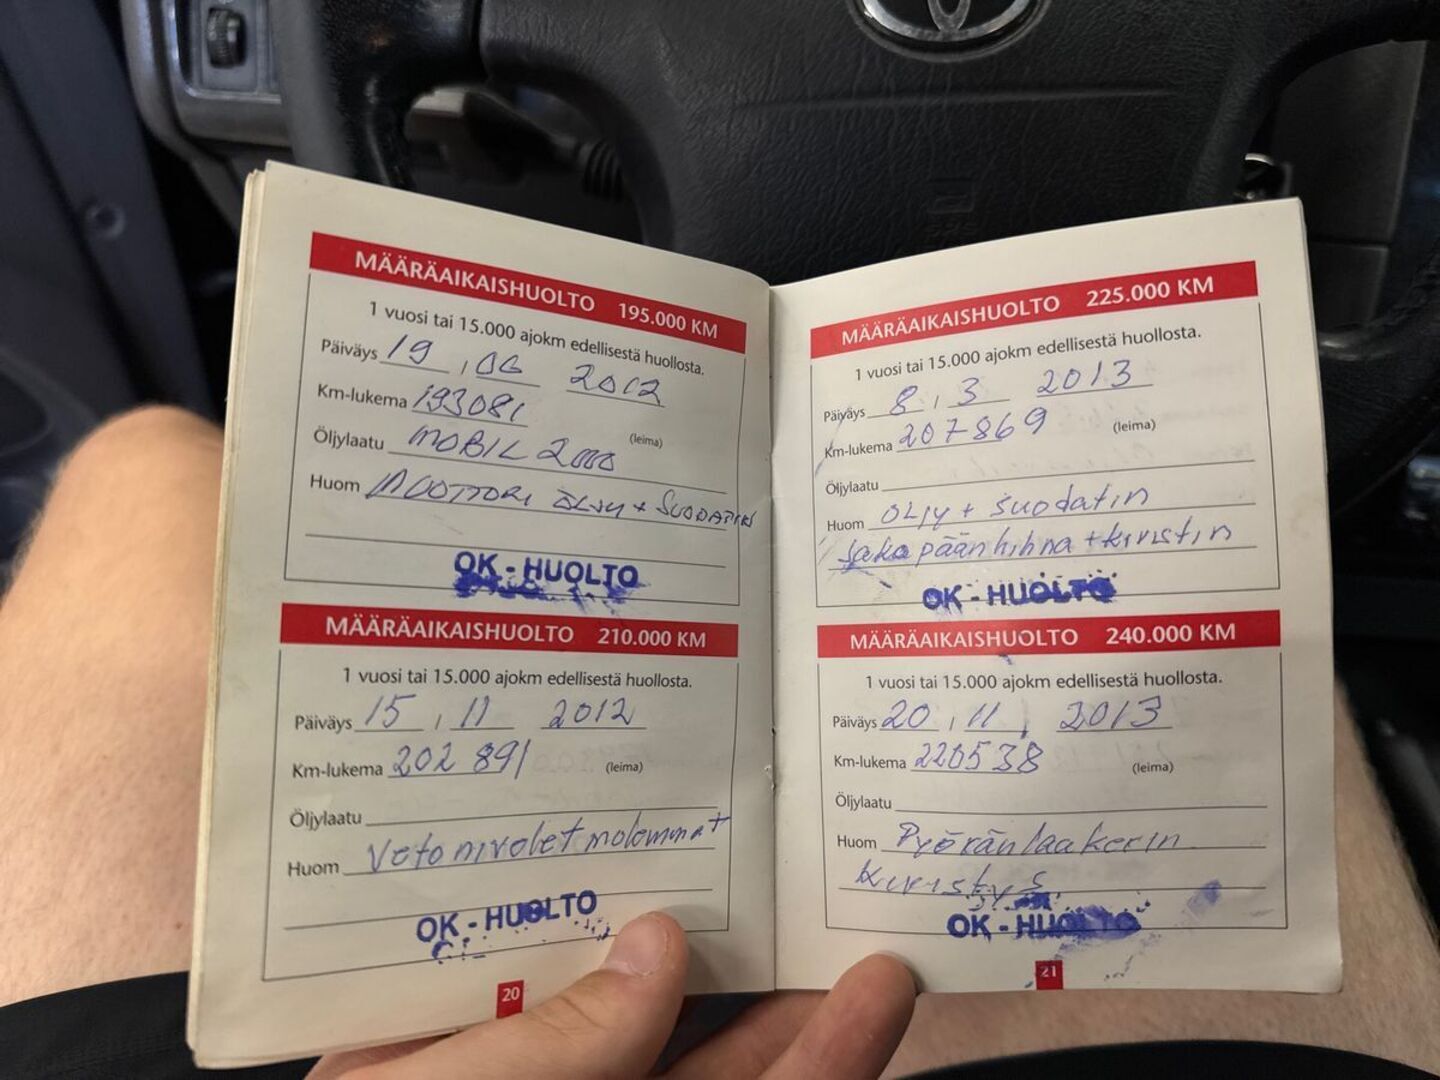 MÄÄRÄAIKAISHUOLTO 195.000 KM
1 vuosi tai 15.000 ajokm edellisestä huollosta.
Päiväys 19 , 06 2012
Km-lukema 193081
(leima)
Öljylaatu MOBIL 2000
Huom MOOTTORI ÖLJY + SUODATIN
OK - HUOLTO
MÄÄRÄAIKAISHUOLTO 210.000 KM
1 vuosi tai 15.000 ajokm edellisestä huollosta.
Päiväys 15 , 11 2012
Km-lukema 202 891
(leima)
Öljylaatu
Huom Vetonivelet molemmat
OK - HUOLTO
20
MÄÄRÄAIKAISHUOLTO 225.000 KM
1 vuosi tai 15.000 ajokm edellisestä huollosta.
Päiväys 8 , 3 2013
Km-lukema 207869
(leima)
Öljylaatu
Huom ÖLJY + suodatin
Jakopään hihna + kiristin
OK - HUOLTO
MÄÄRÄAIKAISHUOLTO 240.000 KM
1 vuosi tai 15.000 ajokm edellisestä huollosta.
Päiväys 20 , 11 , 2013
Km-lukema 220538
(leima)
Öljylaatu
Huom Pyöränlaakerin
kiristys
OK - HUOLTO
21